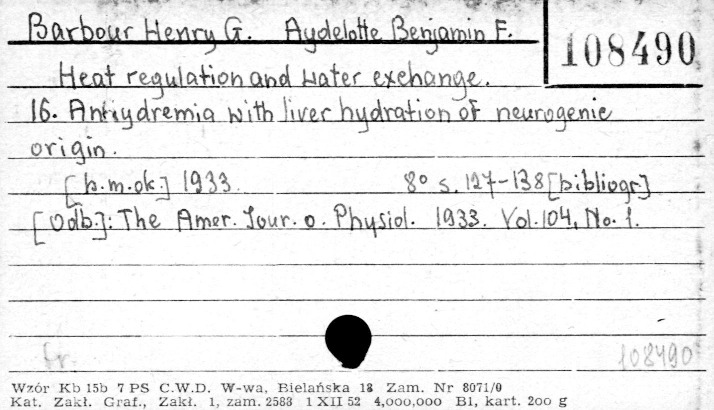 Barbour Henry G. Aydelotte Benjamin F.
108490
Heat regulation and water exchange.
16. Anhydremia with liver hydration of neurogenic
origin.
[b.m.ok.] 1933. 8° s. 127-138 [bibliogr]
[Odb.]: The Amer. Jour. o. Physiol. 1933. Vol. 104, No. 1.
fr. 108490
Wzór Kb 15b 7 PS C.W.D. W-wa, Bielańska 18 Zam. Nr 8071/0
Kat. Zakł. Graf., Zakł. 1, zam. 2583 1 XII 52 4,000,000 B1, kart. 200 g